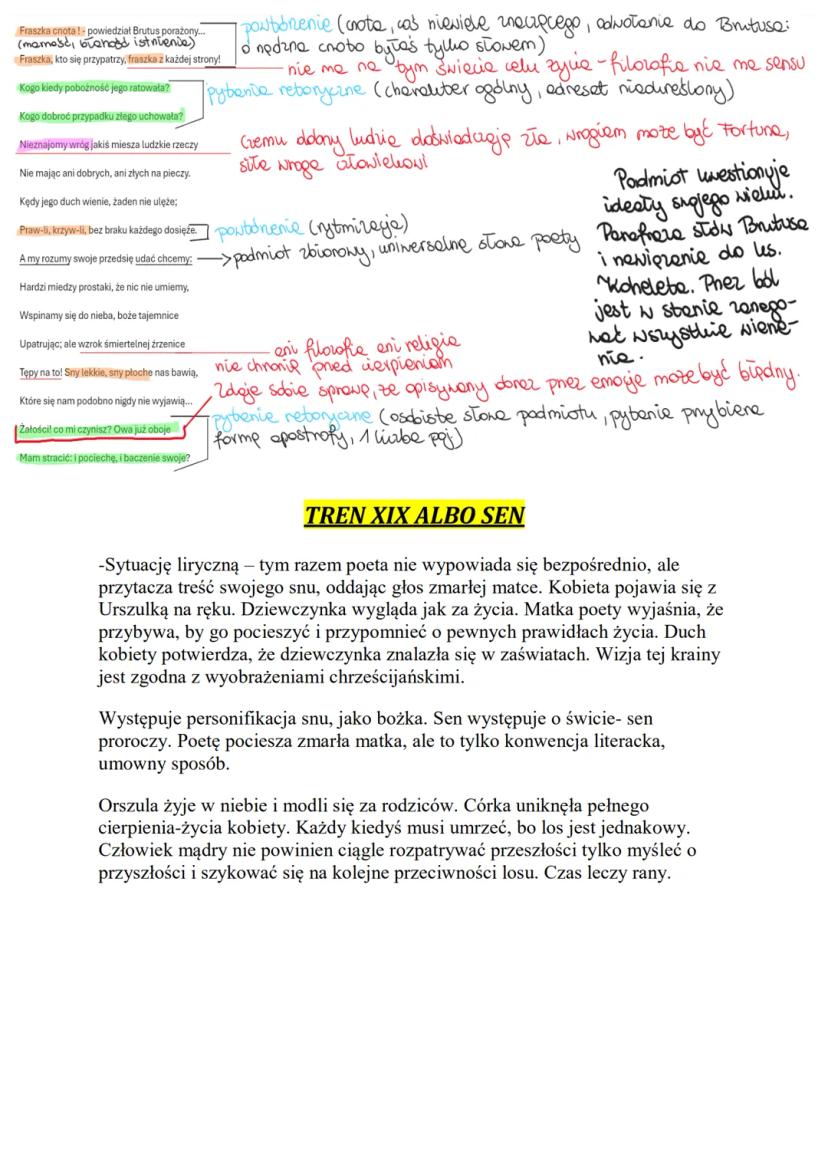 Fraszka cnota! - powiedział Brutus porażony...
(marność, błahość istnienia)
Fraszka, kto się przypatrzy, fraszka z każdej strony!
powtórzenie (cnota, coś niewiele znaczącego, odwołanie do Brutusa:
o nędzna cnoto byłaś tylko słowem)
nie ma na tym świecie celu życia - filozofia nie ma sensu
Kogo kiedy pobożność jego ratowała?
Kogo dobroć przypadku złego uchowała?
pytania retoryczne (charakter ogólny, adresat nieokreślony)
Nieznajomy wróg jakiś miesza ludzkie rzeczy
czemu dobrzy ludzie doświadczają zła, wrogiem może być Fortuna,
siła wroga człowiekowi
Nie mając ani dobrych, ani złych na pieczy.
Kędy jego duch wienie, żaden nie ulęże;
Praw-li, krzyw-li, bez braku każdego dosięże.
powtórzenie (rytmizacja)
A my rozumy swoje przedsię udać chcemy:
podmiot zbiorowy, uniwersalne słowa poety
Podmiot kwestionuje
ideały swojego wieku.
Parafraza słów Brutusa
i nawiązanie do ks.
Koheleta. Przez ból
jest w stanie zanego-
wać wszystkie wierze-
nia.
Hardzi miedzy prostaki, że nic nie umiemy,
Wspinamy się do nieba, boże tajemnice
Upatrując; ale wzrok śmiertelnej źrzenice
ani filozofia ani religia
nie chronią przed cierpieniem
Tępy na to! Sny lekkie, sny płoche nas bawią,
Które się nam podobno nigdy nie wyjawią...
Zdaje sobie sprawę, że opisywany obraz przez emocje może być błędny.
Żałości! co mi czynisz? Owa już oboje
Mam stracić: i pociechę, i baczenie swoje?
pytanie retoryczne (osobiste słowa podmiotu, pytanie przybiera
formę apostrofy, 1 liczba poj)
TREN XIX ALBO SEN
-Sytuację liryczną – tym razem poeta nie wypowiada się bezpośrednio, ale
przytacza treść swojego snu, oddając głos zmarłej matce. Kobieta pojawia się z
Urszulką na ręku. Dziewczynka wygląda jak za życia. Matka poety wyjaśnia, że
przybywa, by go pocieszyć i przypomnieć o pewnych prawidłach życia. Duch
kobiety potwierdza, że dziewczynka znalazła się w zaświatach. Wizja tej krainy
jest zgodna z wyobrażeniami chrześcijańskimi.
Występuje personifikacja snu, jako bożka. Sen występuje o świcie- sen
proroczy. Poetę pociesza zmarła matka, ale to tylko konwencja literacka,
umowny sposób.
Orszula żyje w niebie i modli się za rodziców. Córka uniknęła pełnego
cierpienia-życia kobiety. Każdy kiedyś musi umrzeć, bo los jest jednakowy.
Człowiek mądry nie powinien ciągle rozpatrywać przeszłości tylko myśleć o
przyszłości i szykować się na kolejne przeciwności losu. Czas leczy rany.